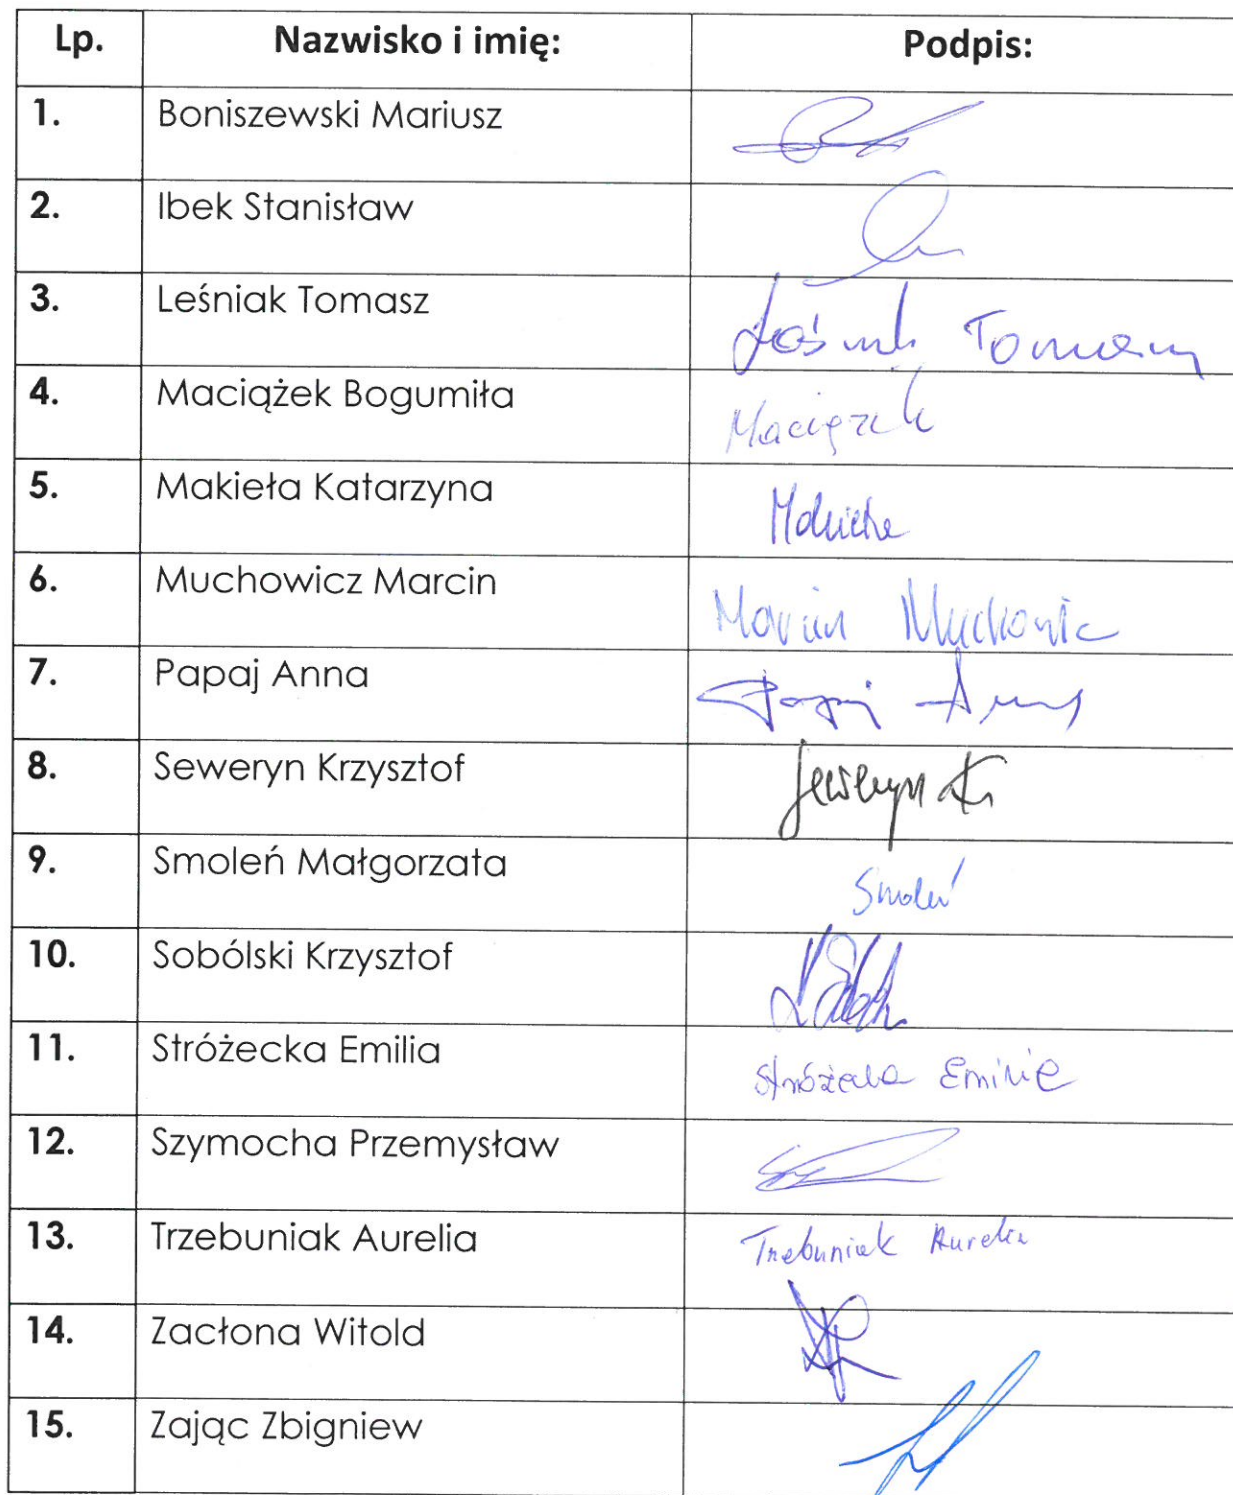 Lp. Nazwisko i imię: Podpis:
1. Boniszewski Mariusz
2. Ibek Stanisław
3. Leśniak Tomasz Leśniak Tomasz
4. Maciążek Bogumiła Maciążek
5. Makieła Katarzyna Makieła
6. Muchowicz Marcin Marcin Muchowicz
7. Papaj Anna Papaj Anna
8. Seweryn Krzysztof Seweryn K
9. Smoleń Małgorzata Smoleń
10. Sobólski Krzysztof
11. Stróżecka Emilia Stróżecka Emilia
12. Szymocha Przemysław
13. Trzebuniak Aurelia Trzebuniak Aurelia
14. Zacłona Witold
15. Zając Zbigniew